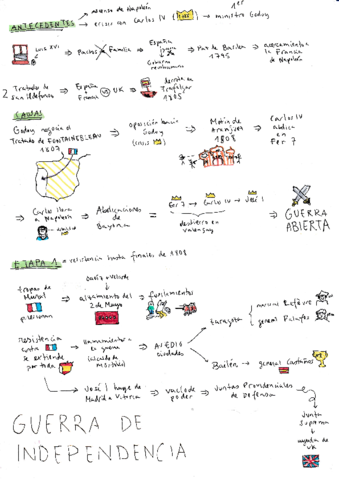 ascenso de Napoleón
ANTECEDENTES
crisis con Carlos IV
1er
ministro Godoy
Luis XVI
Pactos Familia
España
Gobierno
revolucionario
Paz de Basilea
1795
acercamiento a
la Francia
de Napoleón
2 Tratado de
San Ildefonso
España
Francia
VS UK
derrota en
Trafalgar
1805
CAUSA
Godoy negocia el
Tratado de FONTAINEBLEAU
1807
oposición hacia
Godoy
(crisis)
Motín de
Aranjuez
1808
Carlos IV
abdica
en
Fer 7
Carlos llama
a Napoleón
Abdicaciones
de
Bayona
=
Fer 7 → Carlos IV → José I
destierro en
Valençay
GUERRA
ABIERTA
ETAPA 1
resistencia hasta finales de 1808
Daoíz y Velarde
tropas de
Murat
alzamiento del
2 de Mayo
fusilamientos
resistencia
contra
se extiende
por toda
llamamiento a
la guerra
(alcalde de
Móstoles)
ASEDIO
ciudades
Zaragoza
mariscal Lefèvre
general Palafox
Bailén → general Castaños
José I huye de
Madrid a Vitoria
vacío de
poder
Juntas Provinciales
de Defensa
Junta
Suprema
ayuda de
UK
GUERRA DE
INDEPENDENCIA